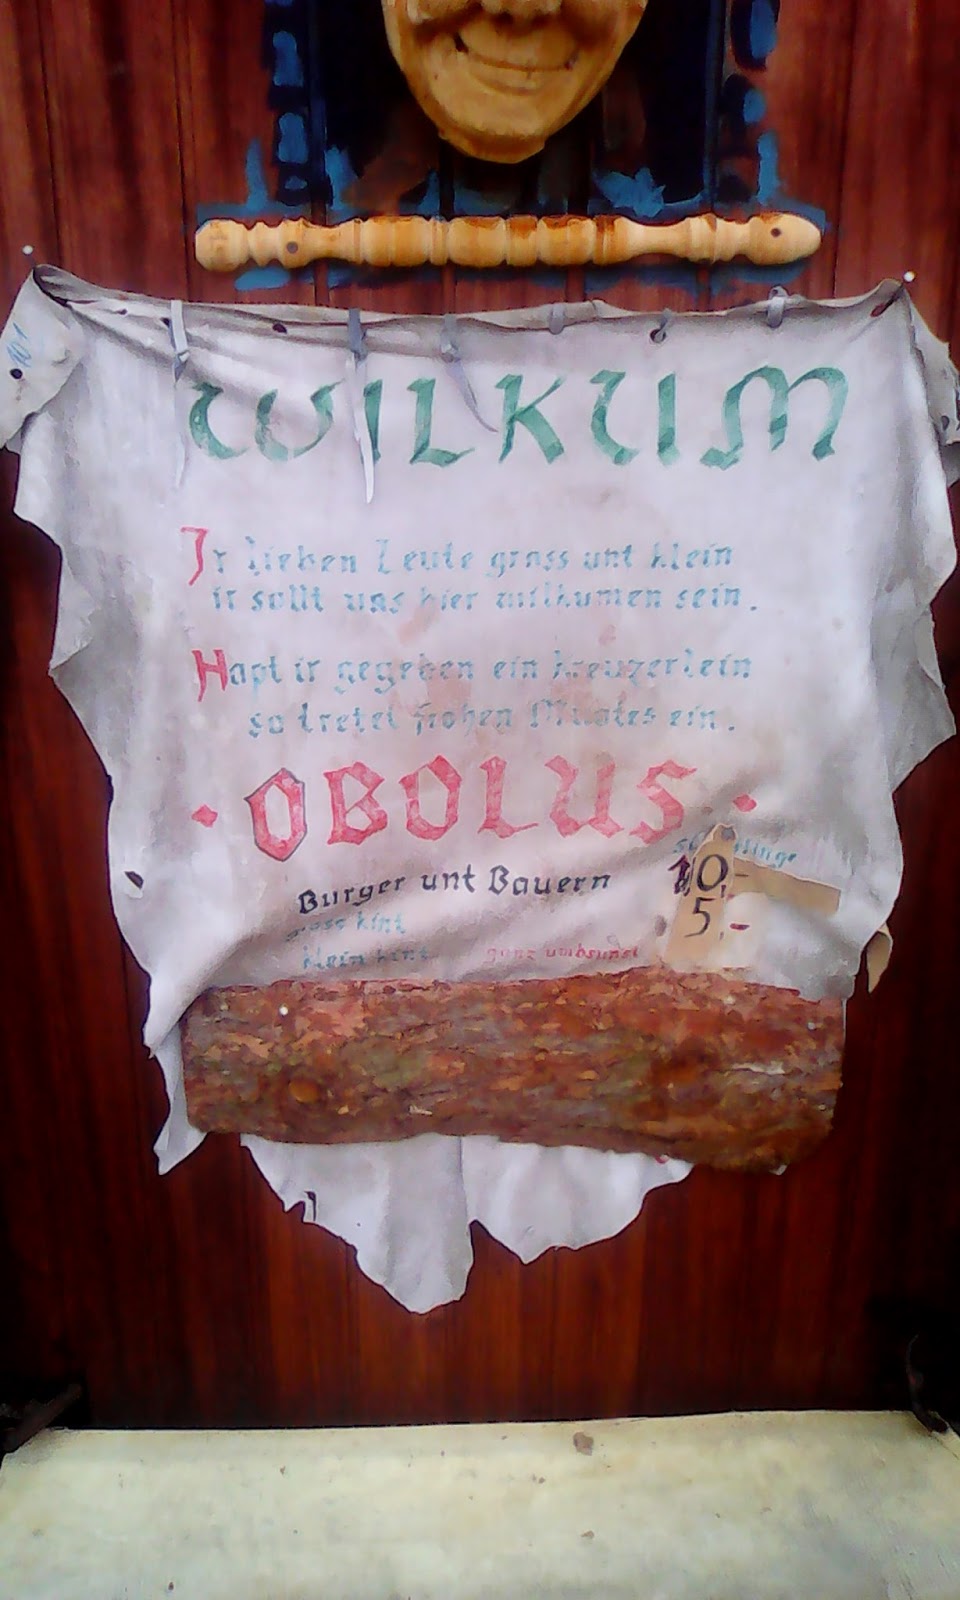 101
WILKUM
Ir lieben Leute gross unt klein
ir sollt uns hier willkumen sein.
Hapt ir gegeben ein Kreuzerlein
so tretet frohen Muotes ein.
· OBOLUS ·
Burger unt Bauern 10,-
gross kint 5,-
klein kint ganz umbsunst